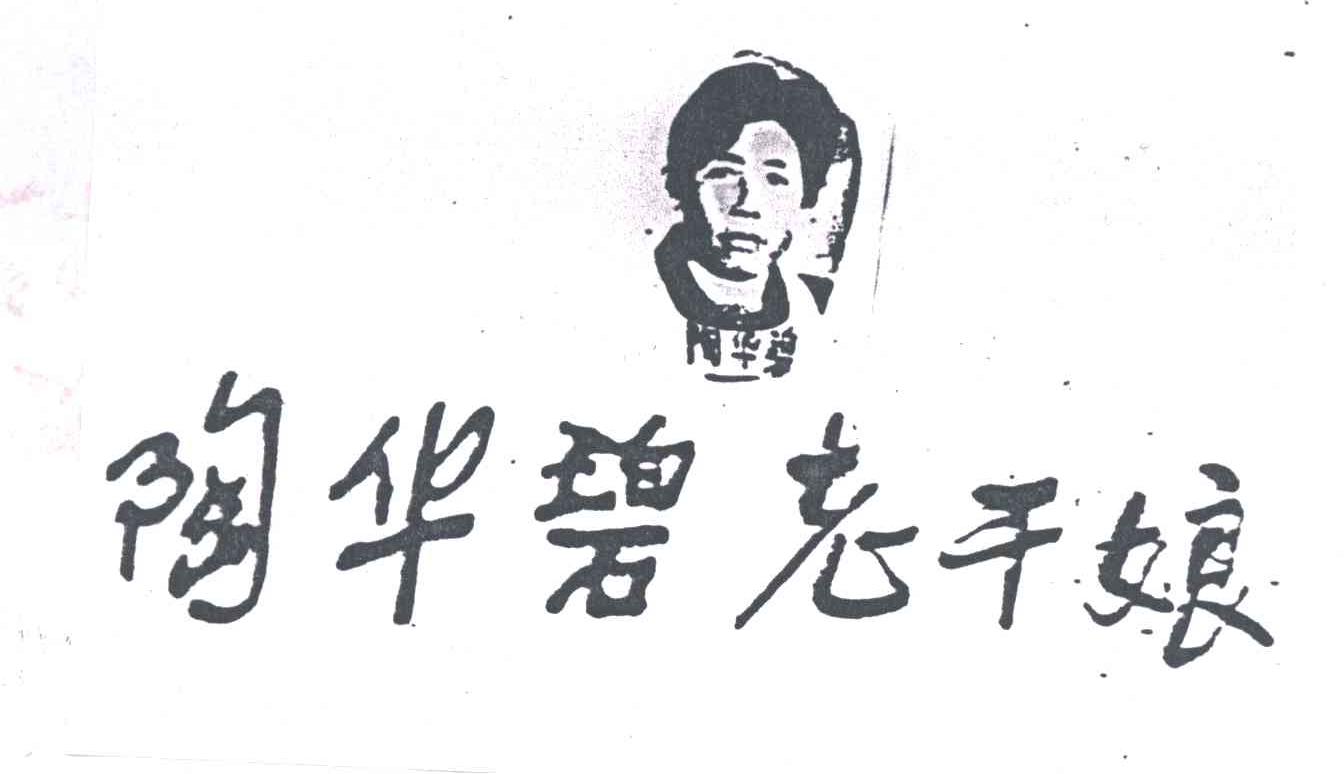 陶华碧
陶华碧老干妈